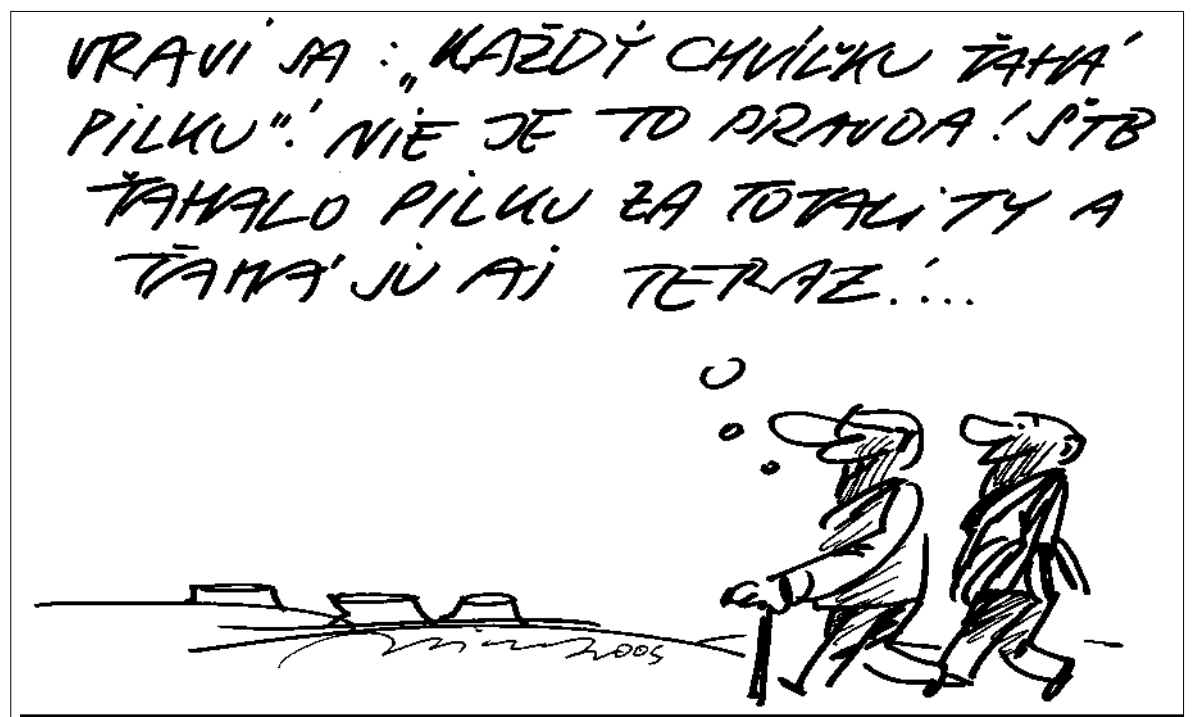 VRAVÍ SA: „KAŽDÝ CHVÍĽKU ŤAHÁ
PÍLKU“! NIE JE TO PRAVDA! ŠTB
ŤAHALO PÍLKU ZA TOTALITY A
ŤAHÁ JU AJ TERAZ!...
2005